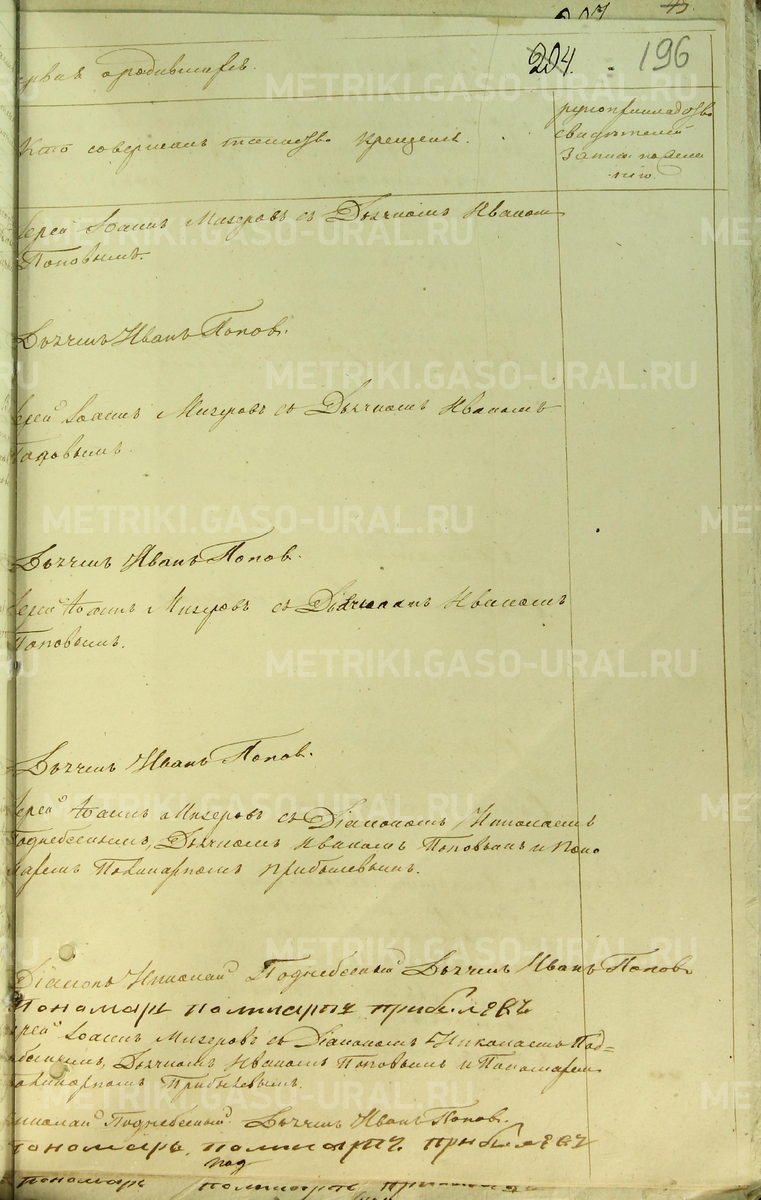 207 45
204. 196
ервая о родившихся.
Кто совершалъ таинство крещенія.
рукоприкладство
свидѣтелей
записи по жела
нію.
Іерей Іоаннъ Мизеровъ съ Дьячкомъ Иваномъ
Поповымъ.
Дьячекъ Иванъ Поповъ.
Іерей Іоаннъ Мизеровъ съ Дьячкомъ Иваномъ
Поповымъ.
Дьячекъ Иванъ Попов.
Іерей Іоаннъ Мизеровъ съ Дьячкомъ Иваномъ
Поповымъ.
Дьячекъ Иванъ Попов.
Іерей Іоаннъ Мизеровъ съ Діакономъ Николаемъ
Поднебеснымъ, Дьячкомъ Иваномъ Поповымъ и Поно
маремъ Поликарпомъ Прибылевымъ.
Діаконъ Николай Поднебесный Дьячекъ Иванъ Попов
Пономарь поликарпъ прибылевъ
Іерей Іоаннъ Мизеровъ съ Діакономъ Николаемъ Под=
небеснымъ, Дьячкомъ Иваномъ Поповымъ и Пономаремъ
Поликарпомъ Прибылевымъ.
Николай Поднебесный. Дьячекъ Иванъ Попов.
пономарь поликарпъ прибылевъ
под
пономарь поликарпъ
METRIKI.GASO-URAL.RU